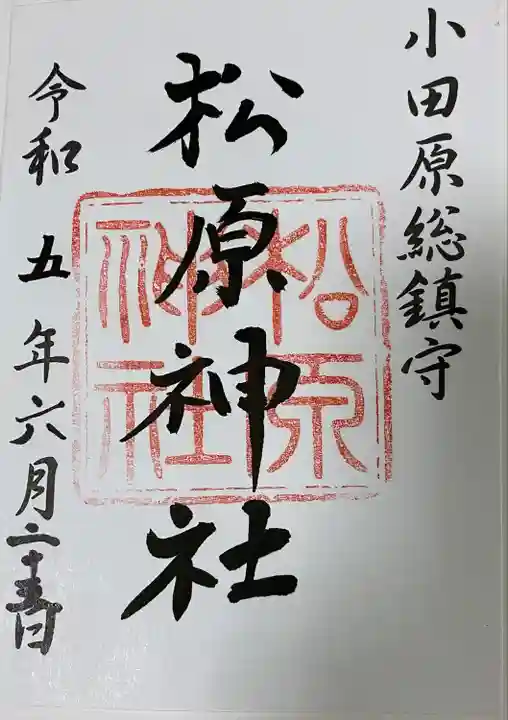 小田原総鎮守
松原神社
松原
神社
令和五年六月二十五日